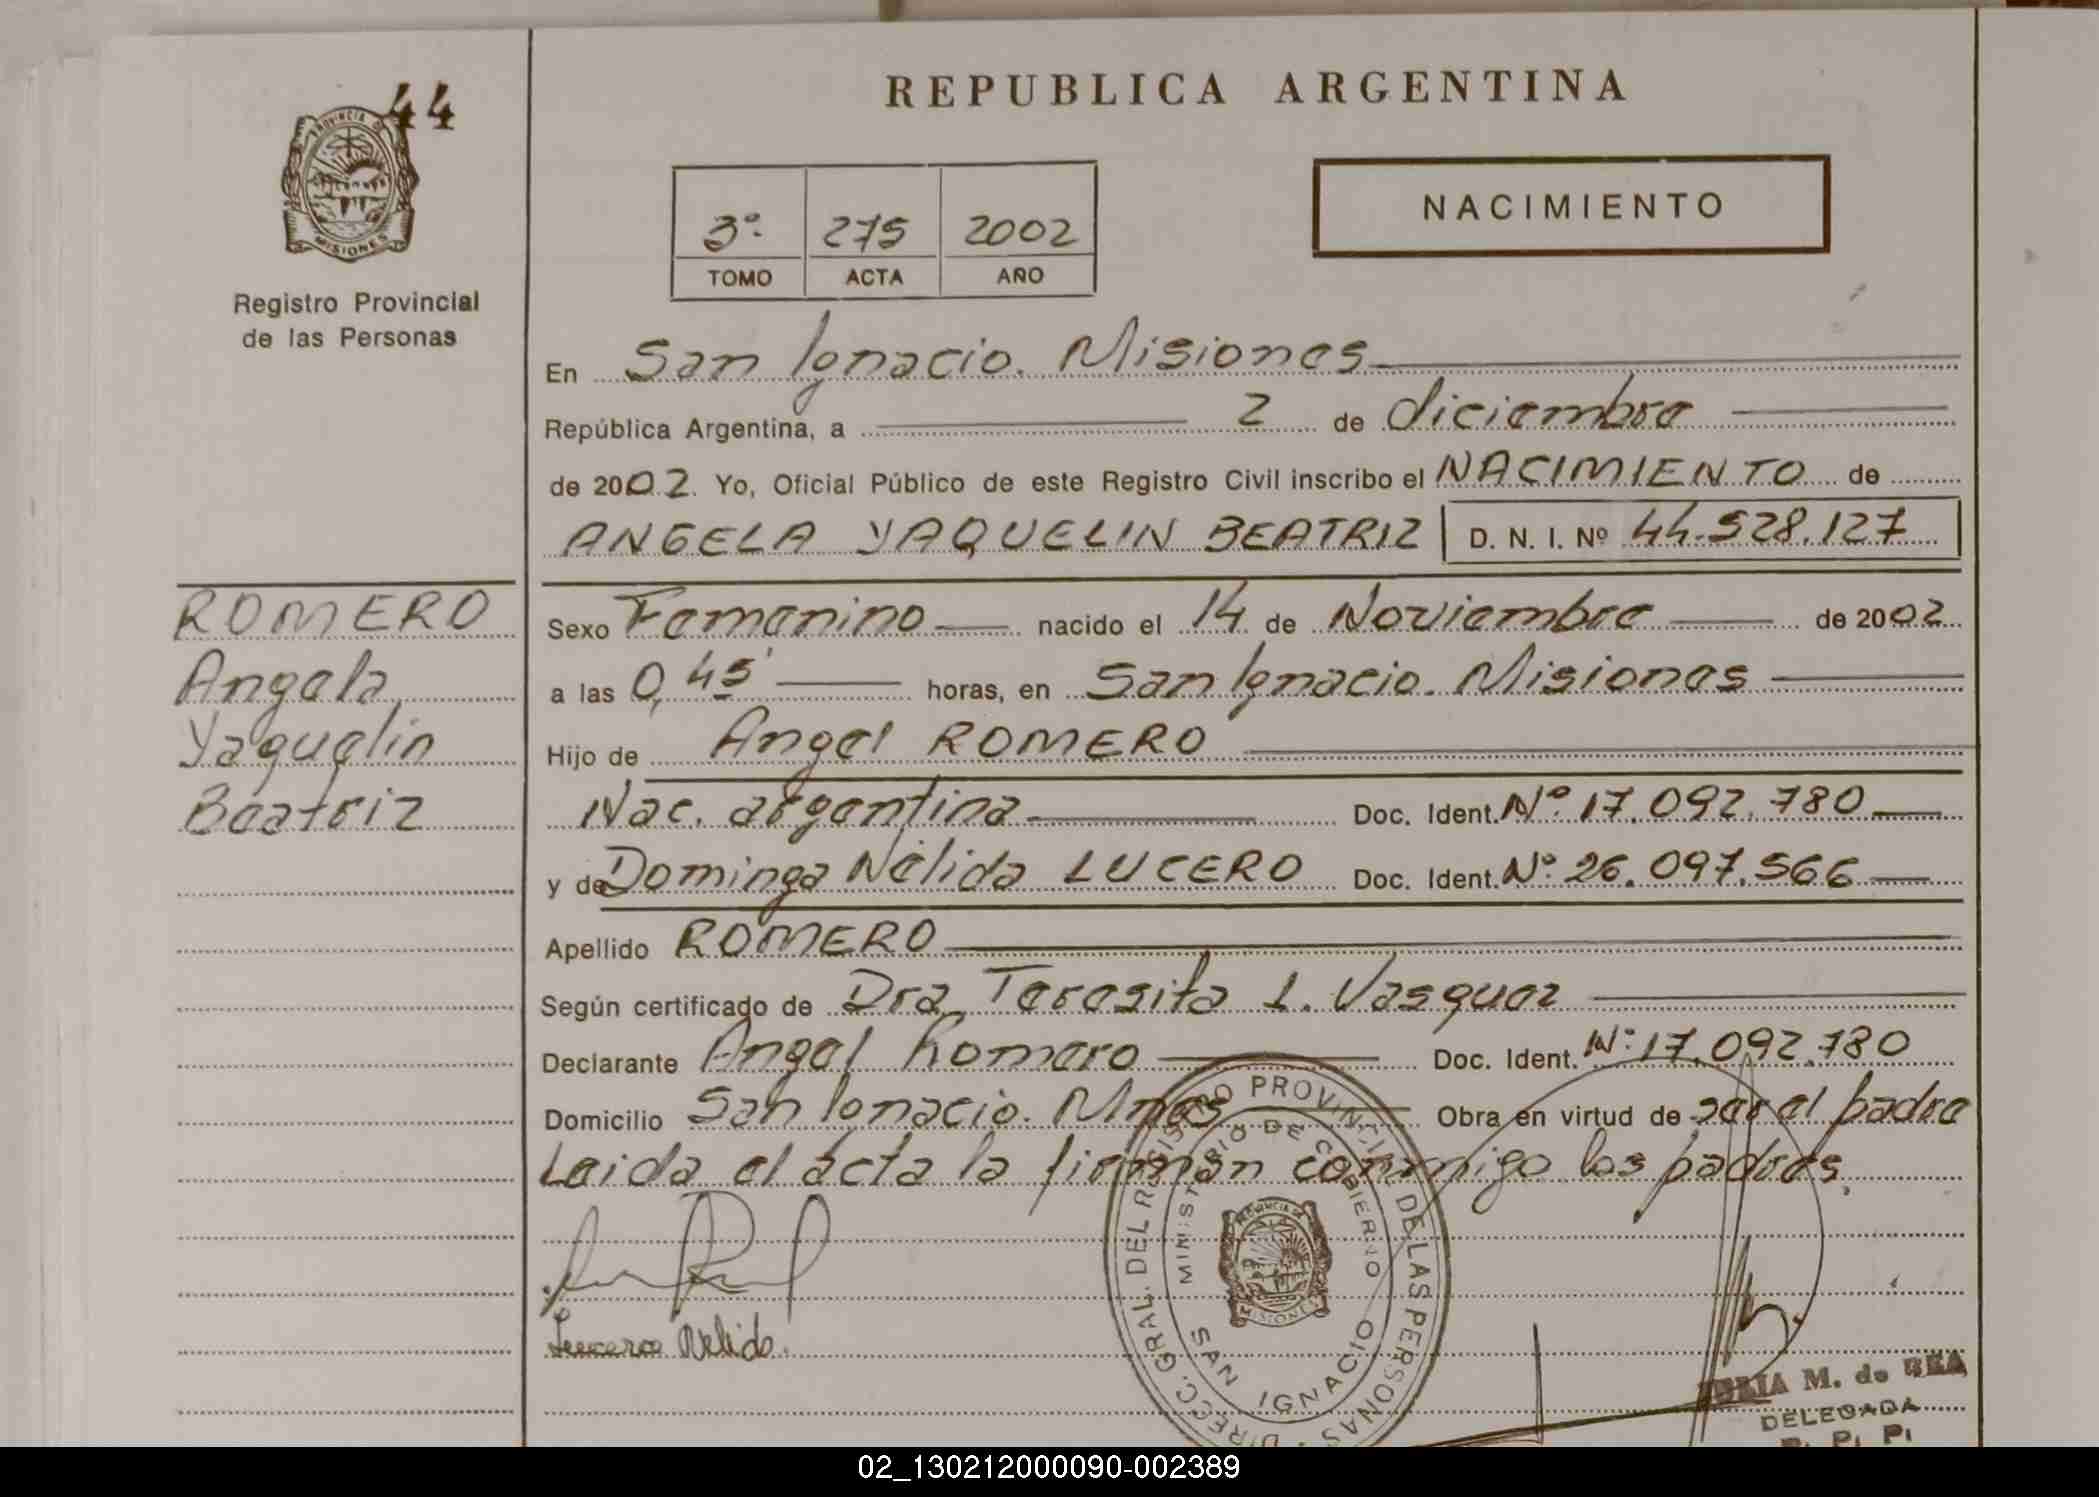 44
PROVINCIA DE
MISIONES
Registro Provincial
de las Personas
REPUBLICA ARGENTINA
3º 275 2002
TOMO ACTA AÑO
NACIMIENTO
En San Ignacio. Misiones
República Argentina, a 2 de diciembre
de 2002. Yo, Oficial Público de este Registro Civil inscribo el NACIMIENTO de
ANGELA YAQUELIN BEATRIZ D. N. I. Nº 44.528.127
ROMERO
Angela
Yaquelin
Beatriz
Sexo Femenino nacido el 14 de Noviembre de 2002
a las 0,45' horas, en San Ignacio. Misiones
Hijo de Angel ROMERO
Nac. argentina Doc. Ident. Nº 17.092.780
y de Dominga Nélida LUCERO Doc. Ident. Nº 26.097.566
Apellido ROMERO
Según certificado de Dra Teresita L. Vasquez
Declarante Angel Romero Doc. Ident. Nº 17.092.780
Domicilio San Ignacio. Mnes Obra en virtud de ser el padre
Leida el acta la firman conmigo los padres.
Lucero Nelida.
DIRECC. GRAL. DEL REGISTRO PROVINCIAL DE LAS PERSONAS
MINISTERIO DE GOBIERNO
SAN IGNACIO
M. de
DELEGADA
R. P. P.
02_130212000090-002389